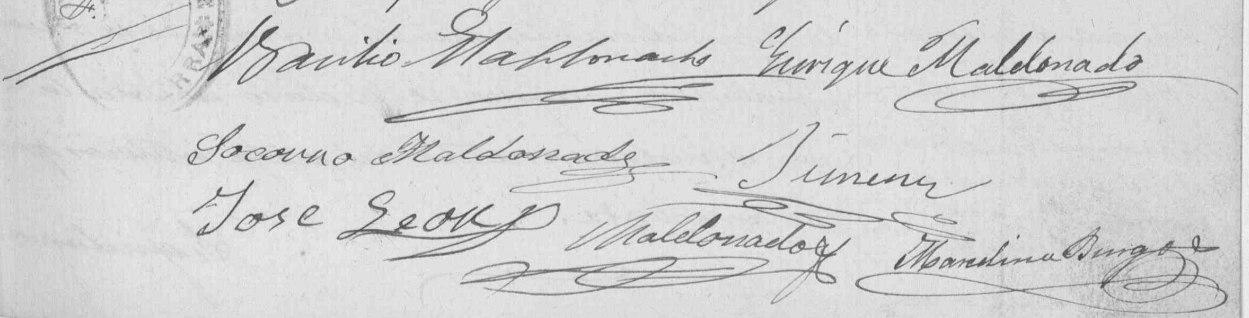 Basilio Maldonado Enrique Maldonado
Socorro Maldonado Jimenez
Jose Leon Maldonado y Marcelina Burgos